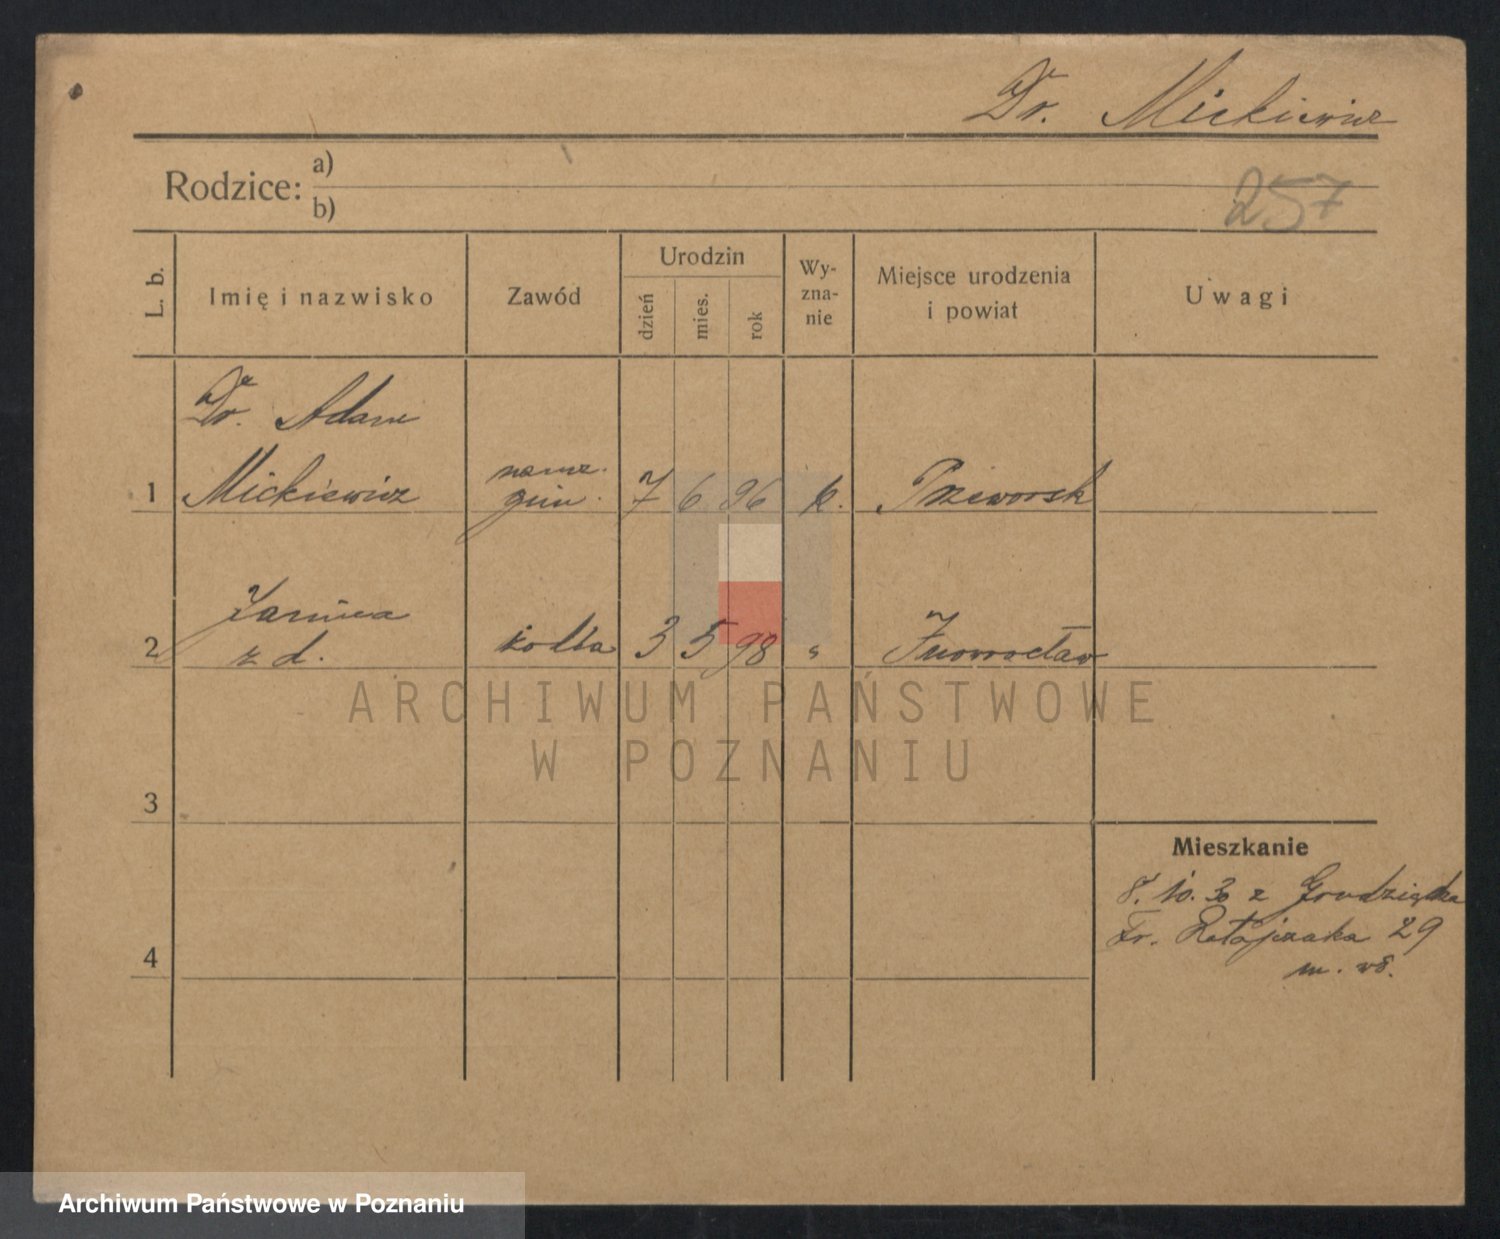 Dr. Mickiewicz
Rodzice: a)
b)
257
L. b.
Imię i nazwisko
Zawód
Urodzin
dzień
mies.
rok
Wy-
zna-
nie
Miejsce urodzenia
i powiat
Uwagi
Dr. Adam
1 Mickiewicz naucz. gim. 7 6 96 k. Przeworsk
2 z d. 3 5 98 " Inowrocław
ARCHIWUM PAŃSTWOWE
W POZNANIU
3
Mieszkanie
8. 10. 30 z Grudziądza
Fr. Ratajczaka 29
4
m.
Archiwum Państwowe w Poznaniu